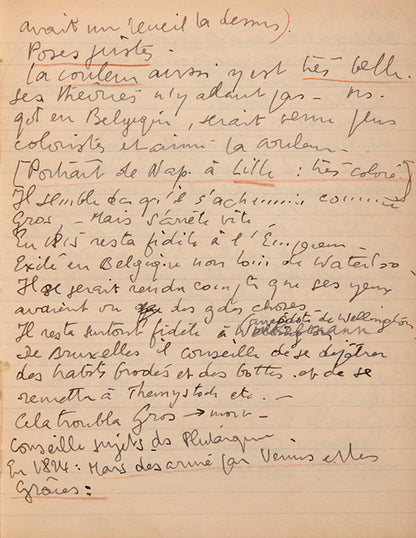 avait un recueil là dessus).
Poses justes.
La couleur aussi y est très belle.
ses théories n'y aidant pas –
qd en Belgique, serait venu plus
coloriste et aima la couleur.
[Portrait de Nap. à Lille : très coloré.]
Il semble dc qu'il s'achemine comme
Gros – Mais s'arrête vite.
En 1815 resta fidèle à l'Empereur –
Exilé en Belgique non loin de Waterloo
Il se serait rendu compte que ses yeux
avaient vu des gdes choses.
Anecdote de Wellington
Il resta surtout fidèle à
De Bruxelles il conseille de se dépêtrer
des habits brodés et des bottes. et de se
remettre à Themystocle etc. –
Cela troubla Gros → mort –
Conseille sujets ds Plutarque.
En 1824 : Mars désarmé par Venus et les
Grâces :